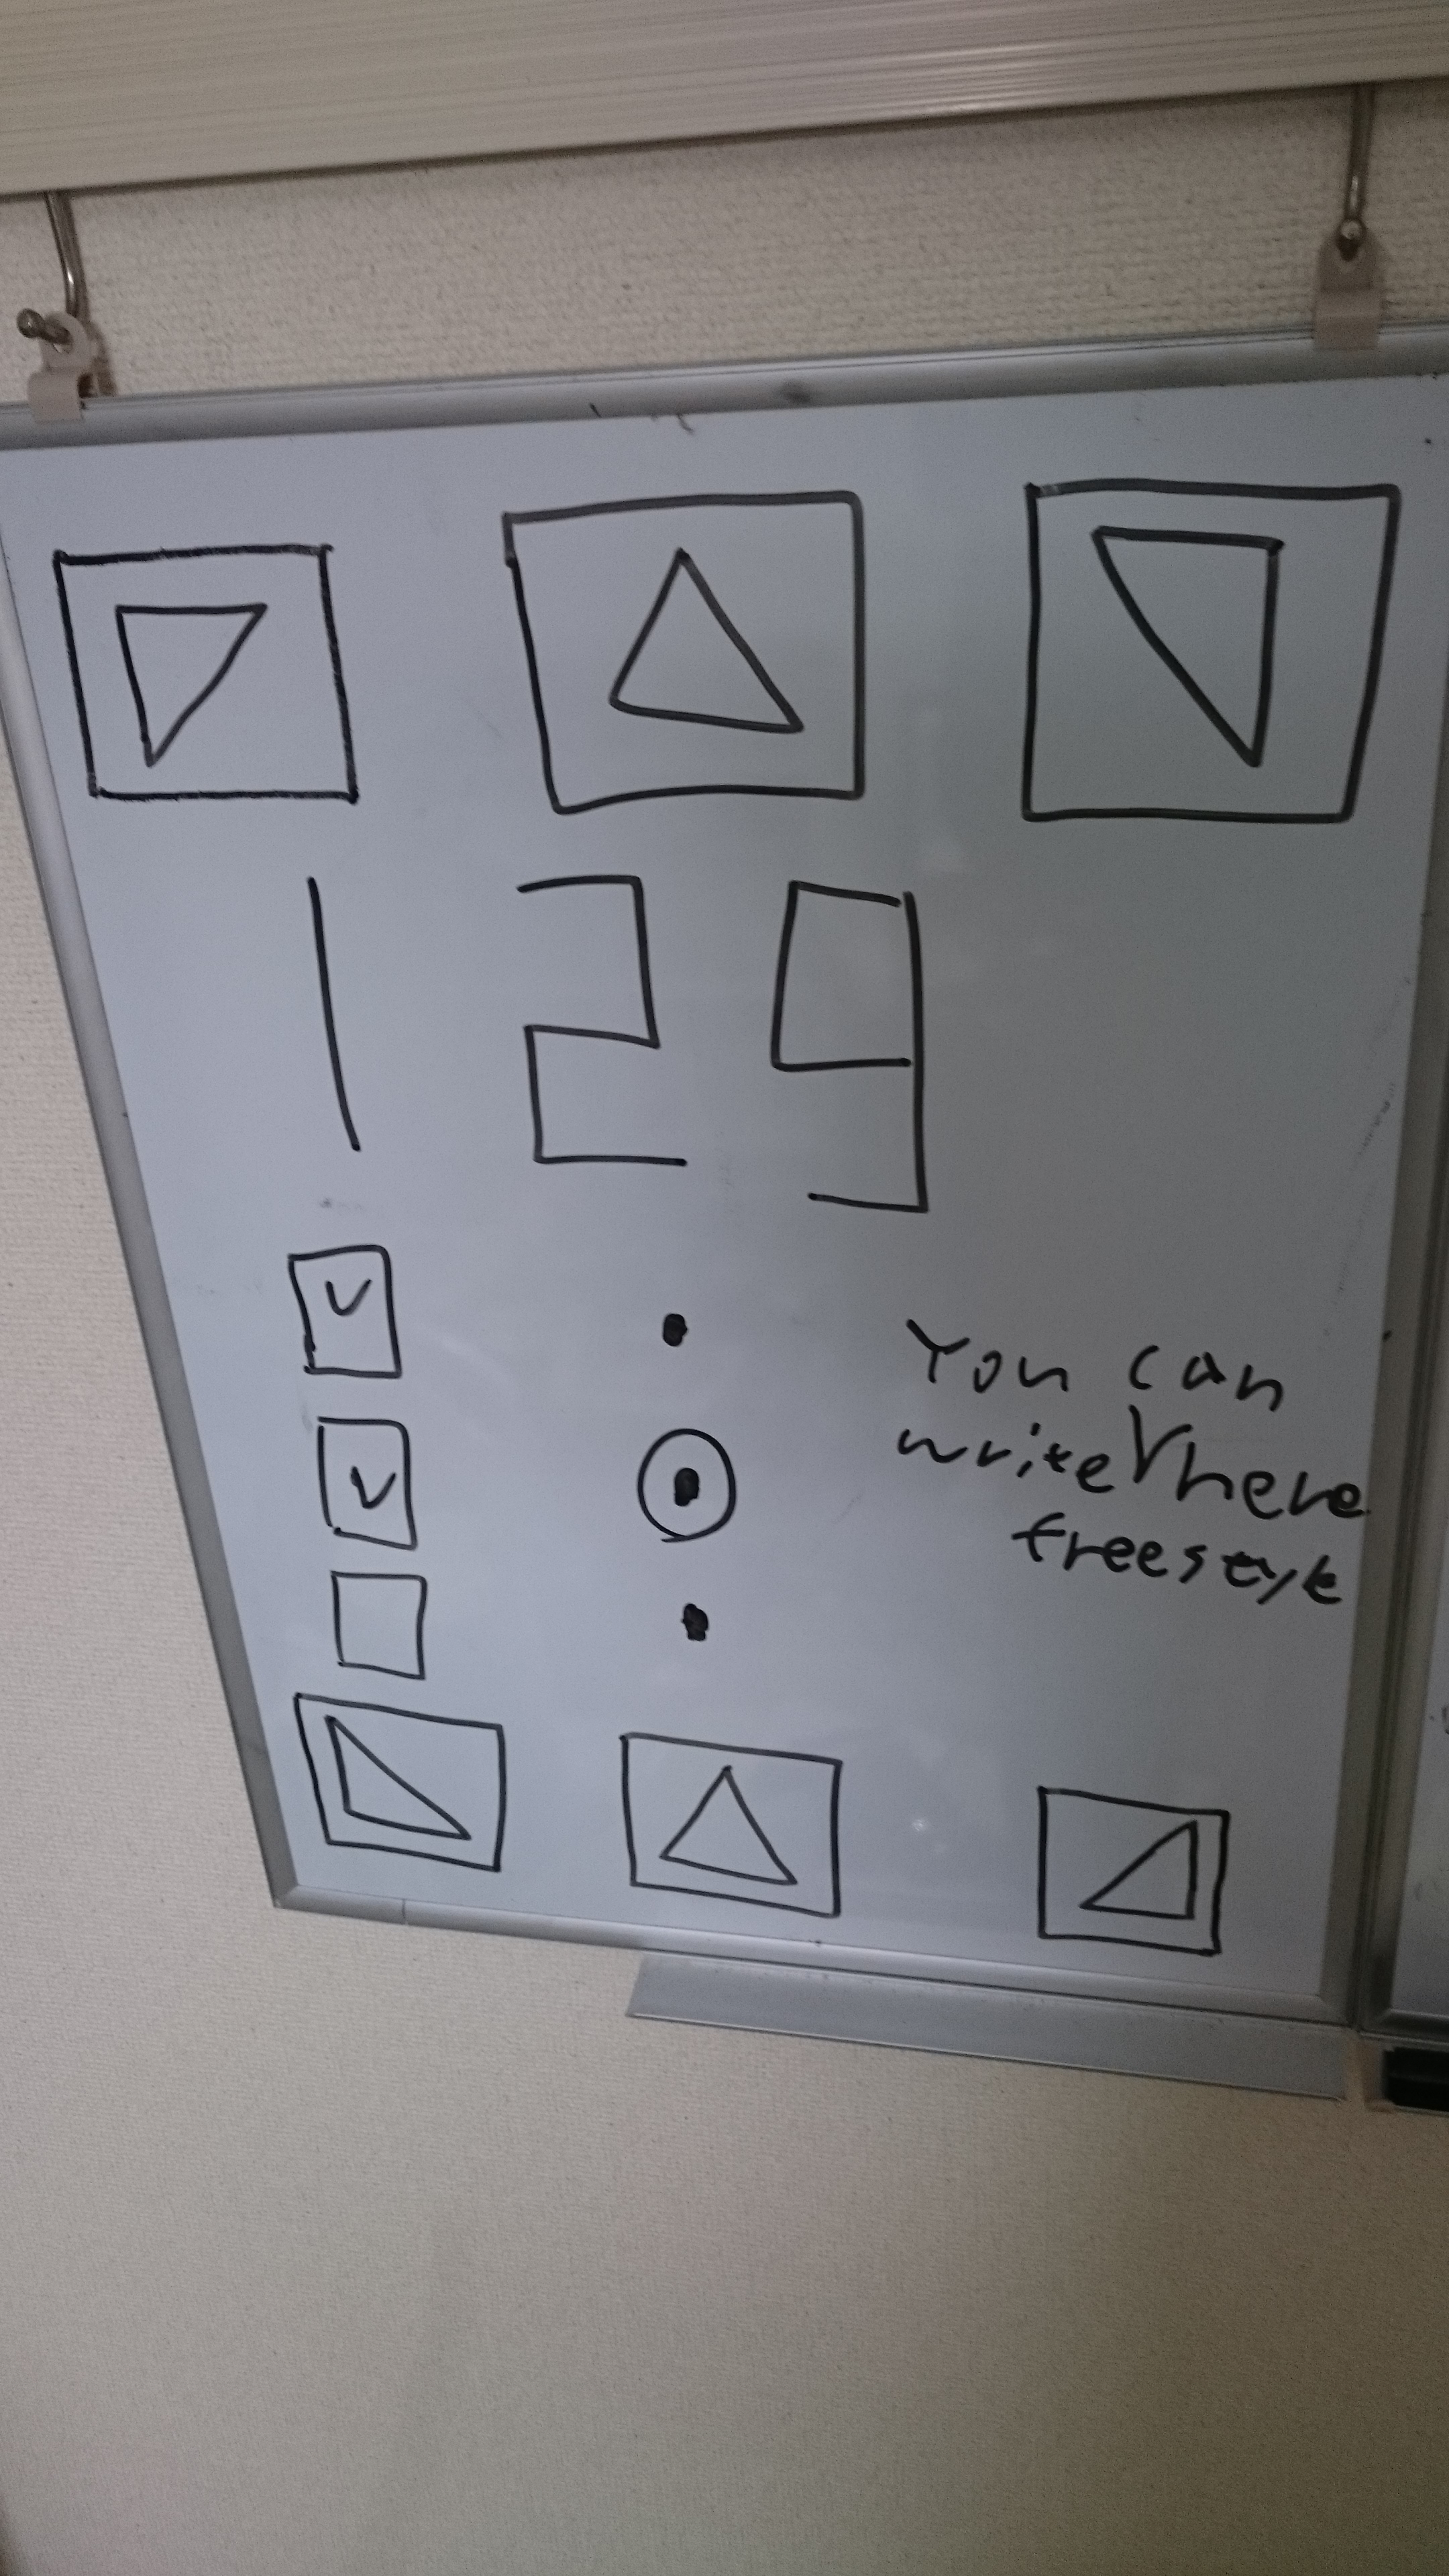 129
You can
write here
freestyle